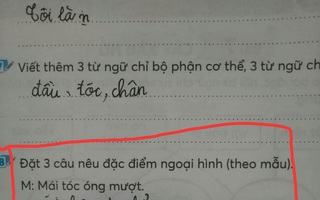 Tôi là
Viết thêm 3 từ ngữ chỉ bộ phận cơ thể, 3 từ ngữ ch
đầu, tóc, chân
Đặt 3 câu nêu đặc điểm ngoại hình (theo mẫu).
M: Mái tóc óng mượt.